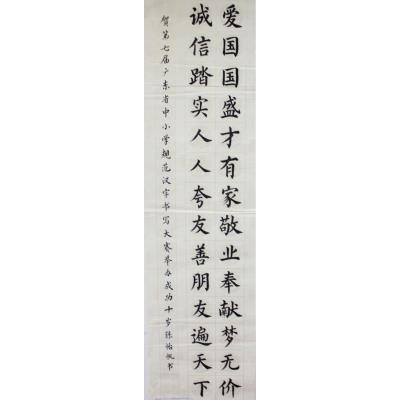 爱国国盛才有家敬业奉献梦无价
诚信踏实人人夸友善朋友遍天下
贺第七届广东省中小学规范汉字书写大赛举办成功十岁陈怡帆书